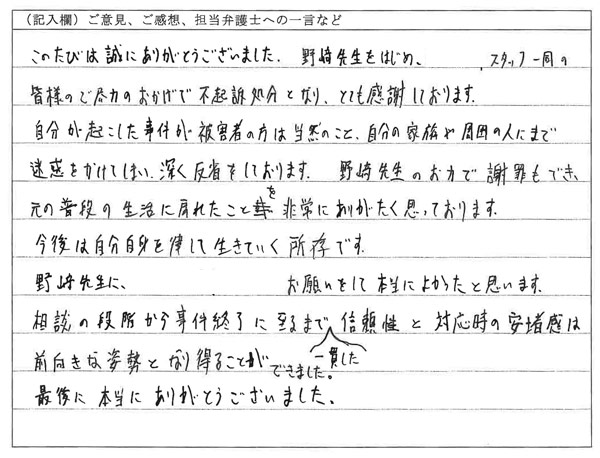 （記入欄）ご意見、ご感想、担当弁護士への一言など
このたびは誠にありがとうございました。野﨑先生をはじめ、 スタッフ一同の
皆様のご尽力のおかげで不起訴処分となり、とても感謝しております。
自分が起こした事件が被害者の方は当然のこと、自分の家族や周囲の人にまで
迷惑をかけてしまい、深く反省をしております。 野﨑先生のお力で謝罪もでき、
元の普段の生活に戻れたことを非常にありがたく思っております。
今後は自分自身を律して生きていく所存です。
野﨑先生に、 お願いをして本当によかったと思います。
相談の段階から事件終了に至るまで一貫した信頼性と対応時の安堵感は
前向きな姿勢となり得ることができました。
最後に本当にありがとうございました。